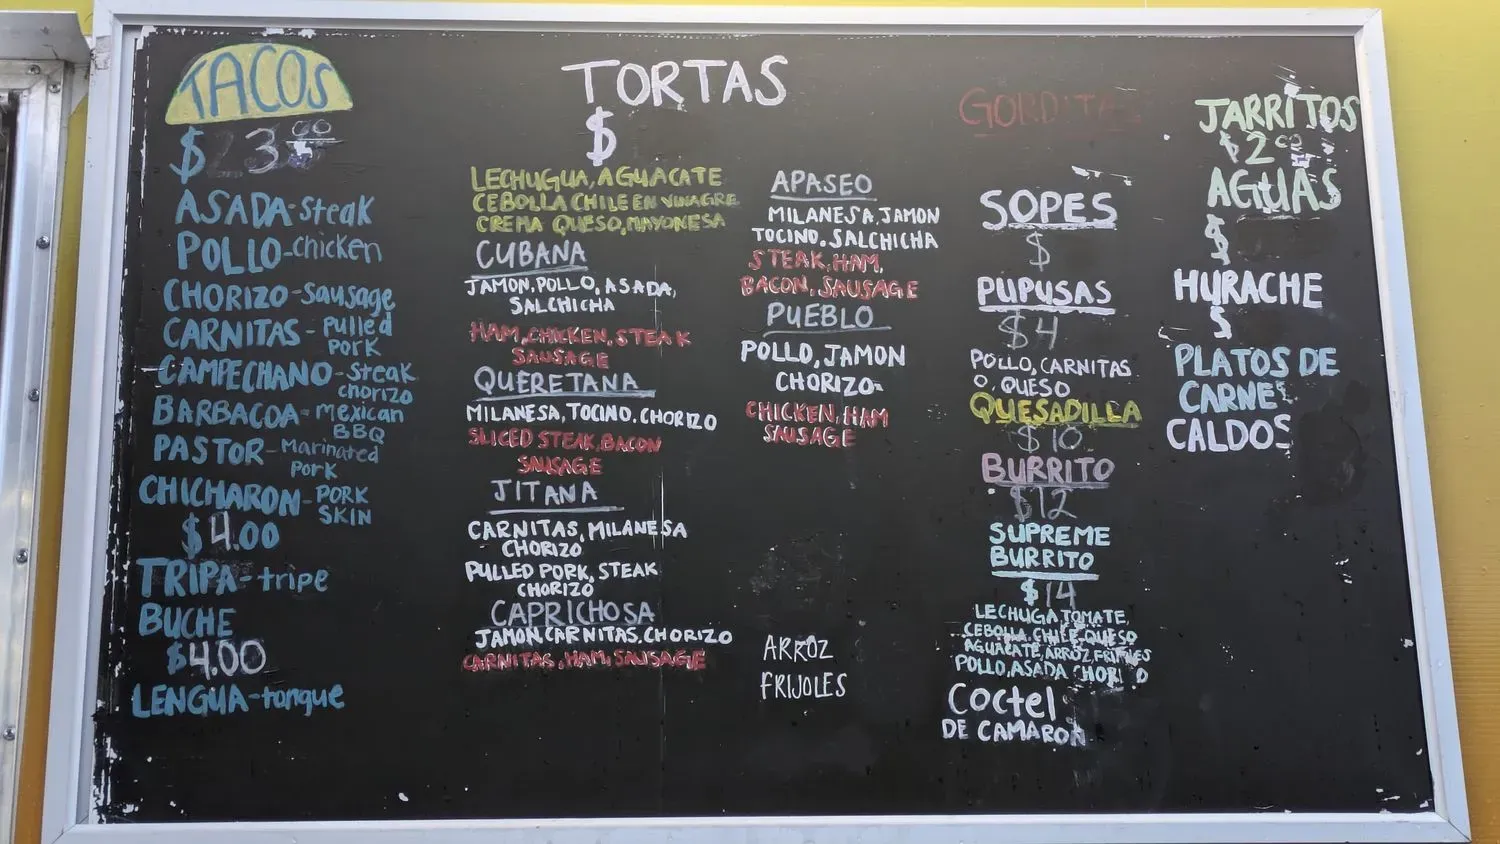 TACOS
$ 3.00
ASADA-Steak
POLLO-chicken
CHORIZO-Sausage
CARNITAS-pulled
pork
CAMPECHANO-steak
chorizo
BARBACOA-mexican
BBQ
PASTOR-Marinated
Pork
CHICHARON-PORK
SKIN
$4.00
TRIPA-tripe
BUCHE
$4.00
LENGUA-tongue
TORTAS
$
LECHUGUA, AGUACATE
CEBOLLA CHILE EN VINAGRE
CREMA QUESO, MAYONESA
CUBANA
JAMON, POLLO, ASADA,
SALCHICHA
HAM, CHICKEN, STEAK
SAUSAGE
QUERETANA
MILANESA, TOCINO. CHORIZO
SLICED STEAK, BACON
SAUSAGE
JITANA
CARNITAS, MILANESA
CHORIZO
PULLED PORK, STEAK
CHORIZO
CAPRICHOSA
JAMON, CARNITAS, CHORIZO
CARNITAS, HAM, SAUSAGE
APASEO
MILANESA, JAMON
TOCINO. SALCHICHA
STEAK, HAM,
BACON, SAUSAGE
PUEBLO
POLLO, JAMON
CHORIZO
CHICKEN, HAM
SAUSAGE
ARROZ
FRIJOLES
GORDITAS
SOPES
$
PUPUSAS
$4
POLLO, CARNITAS
O, QUESO
QUESADILLA
$10
BURRITO
$12
SUPREME
BURRITO
$14
LECHUGA, TOMATE,
CEBOLLA, CHILE, QUESO
AGUACATE, ARROZ, FRIJOLES
POLLO, ASADA
Coctel
DE CAMARON
JARRITOS
$2.00
AGUAS
$
HURACHE
$
PLATOS DE
CARNES
CALDOS